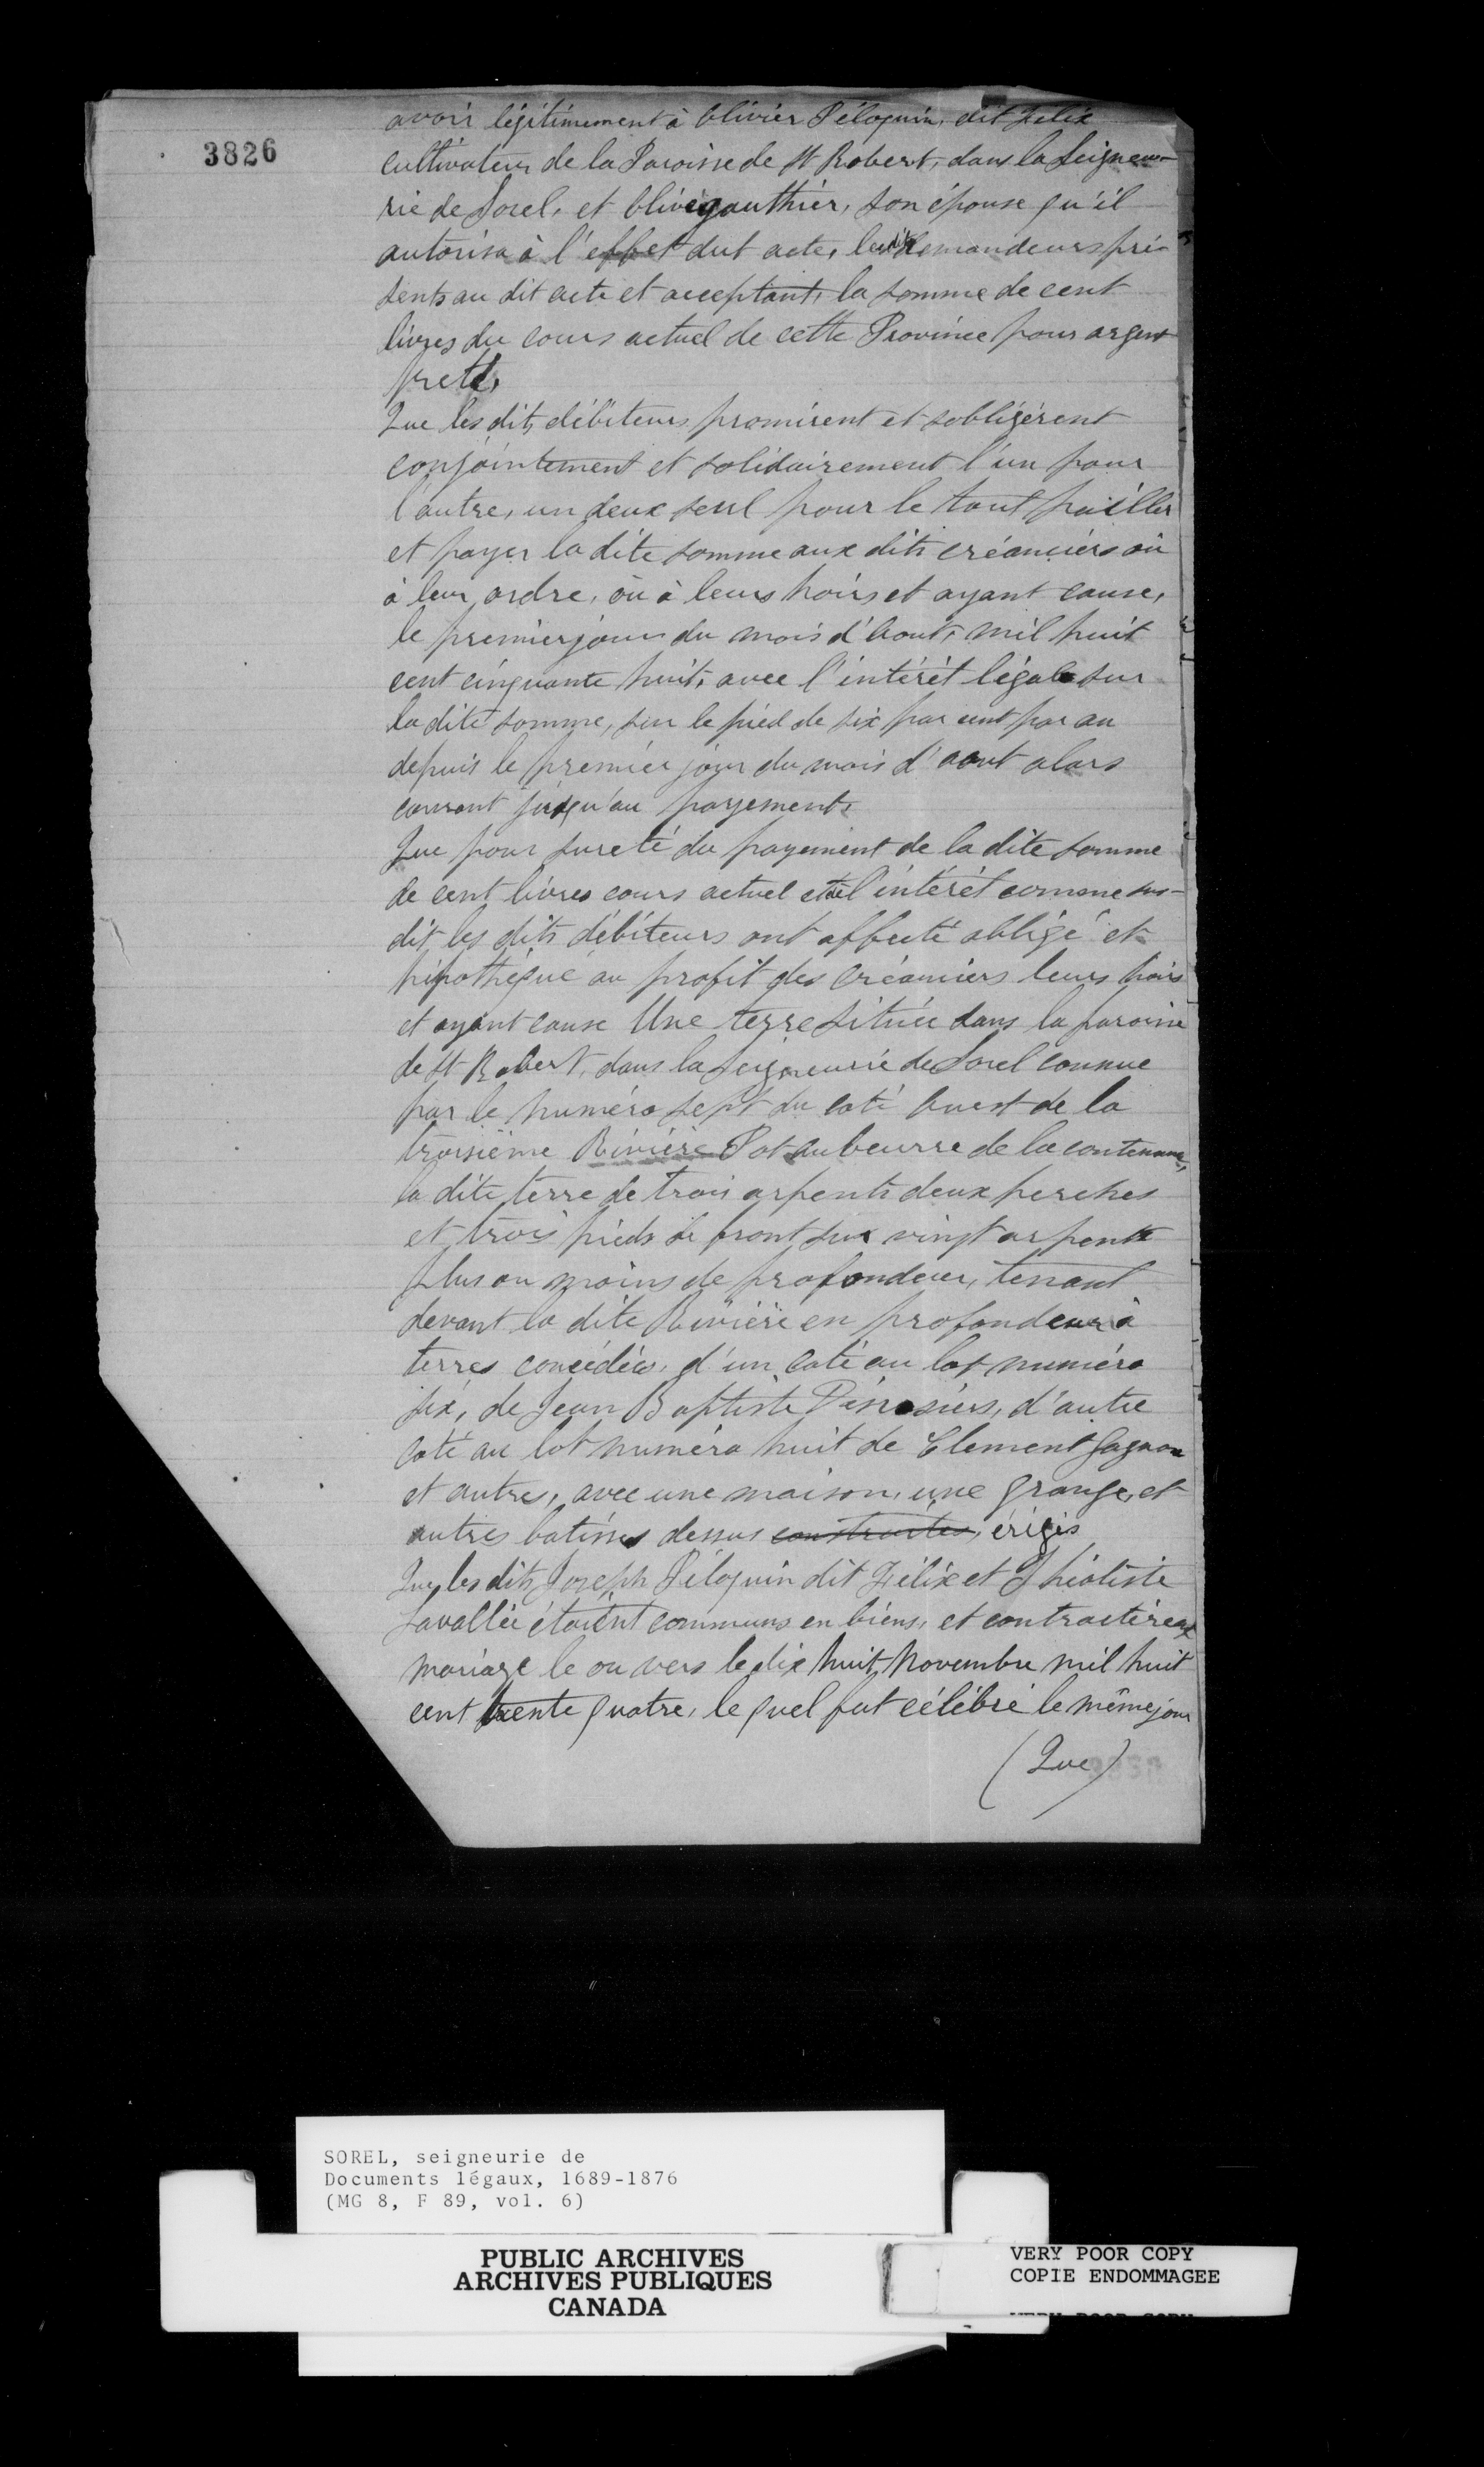 3826
avoir légitimement à Olivier Péloquin, dit Félix
cultivateur de la Paroisse de St Robert, dans la Seigneu-
rie de Sorel, et Olive Gauthier, son épouse qu'il
autorisa à l'effet dut acte, demandeurs pré-
sents au dit acte et acceptant, la somme de cent
livres du cours actuel de cette Province pour argent
prete,
Que les dits débiteurs promirent et sobligèrent
conjointement et solidairement l'un pour
l'autre, un deux seul pour le tout bailler
et payer la dite somme aux dits créanciers où
à leur ordre, où à leurs hoirs et ayant cause,
le premier jour du mois d'Aout, mil huit
cent cinquante huit, avec l'intérêt légale sur
la dite somme, sur le pied de six par cent par an
depuis le premier jour du mois d'aout alors
courant jusqu'au payement.
Que pour sureté du payement de la dite somme
de cent livres cours actuel et de l'intérêt comme sus-
dit les dits débiteurs ont affecté obligé et
hipothéqué au profit des créanciers leurs hoirs
et ayant cause Une terre située dans la paroisse
de St Robert, dans la Seigneurie de Sorel connue
par le numéro sept du coté Ouest de la
troisième Rivière Pot au beurre de la contenance,
la dite terre de trois arpents deux perches
et trois pieds de front sur vingt arpents
plus ou moins de profondeur, tenant
devant la dite Rivière en profondeur à
terres concédées, d'un coté au lot numéro
six, de Jean Baptiste Désrosiers, d'autre
coté au lot numéro huit de Clement Gagnon
et autres, avec une maison, une grange, et
autres batisses dessus construites, érigés
Que les dits Joseph Péloquin dit Félix et Théotiste
Lavallée étaient communs en biens, et contractèrent
mariage le ou vers le dix huit Novembre mil huit
cent trente quatre, le quel fut célébré le même jour
(Que)
SOREL, seigneurie de
Documents légaux, 1689-1876
(MG 8, F 89, vol. 6)
PUBLIC ARCHIVES
ARCHIVES PUBLIQUES
CANADA
VERY POOR COPY
COPIE ENDOMMAGEE
VERY POOR COPY